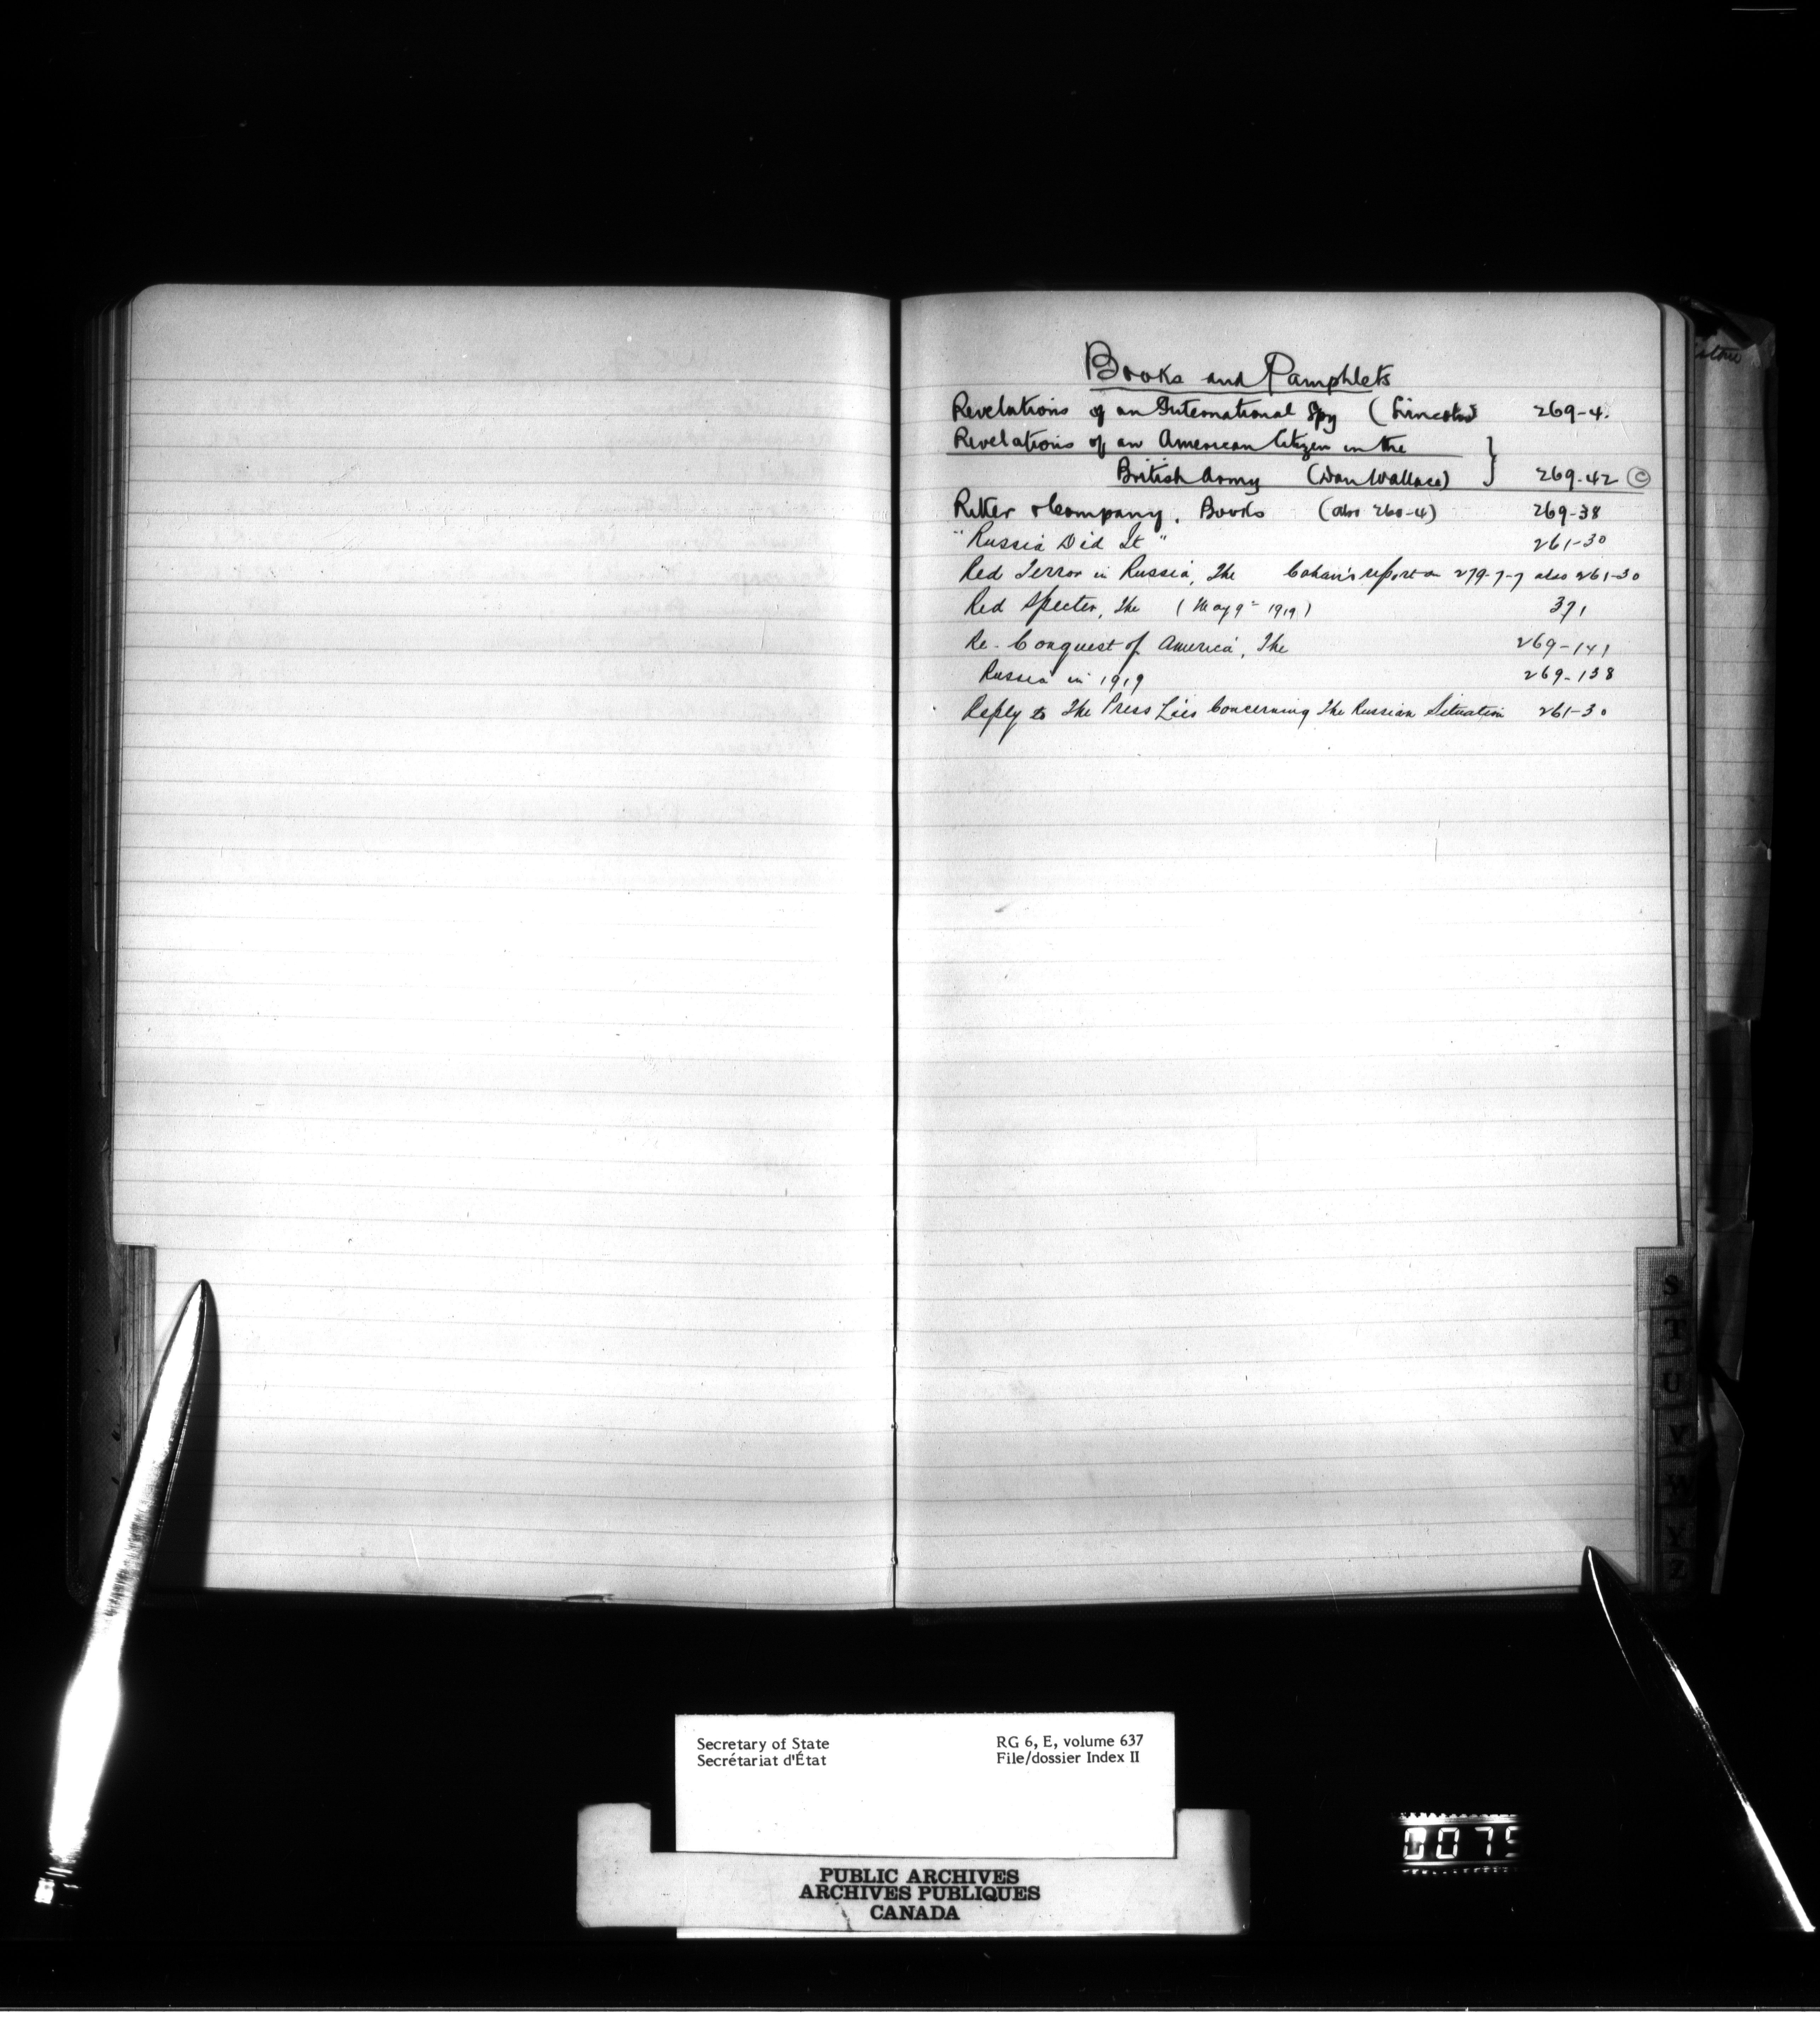 Books and Pamphlets
Revelations of an International Spy (Lincoln) 269-4.
Revelations of an American Citizen in the
British Army (Dan Wallace) } 269-42 ©
Ritter & Company, Books (also 260-4) 269-38
"Russia Did It" 261-30
Red Terror in Russia, The Cahan's report on 279-7-7 also 261-30
Red Specter, The (May 9th 1919) 371
Re-Conquest of America, The 269-141
Russia in 1919 269-138
Reply to The Press Lies Concerning The Russian Situation 261-30
S
T
U
V
W
Y
Z
Secretary of State RG 6, E, volume 637
Secrétariat d'État File/dossier Index II
PUBLIC ARCHIVES
ARCHIVES PUBLIQUES
CANADA
0075